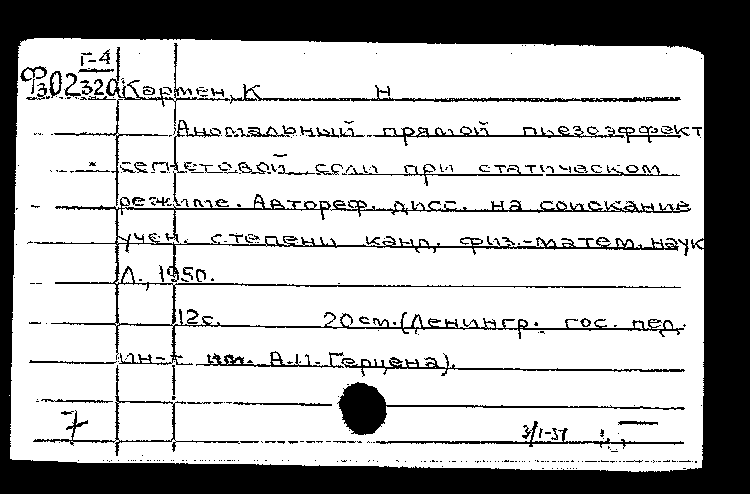 Г-4
Ф302320 Кармен, К Н
Аномальный прямой пьезоэффект
сегнетовой соли при статическом
режиме. Автореф. дисс. на соискание
учен. степени канд. физ.-матем. наук
Л., 1950.
12с. 20см. (Ленингр. гос. пед.
ин-т им. А.И. Герцена).
7
3/1-51